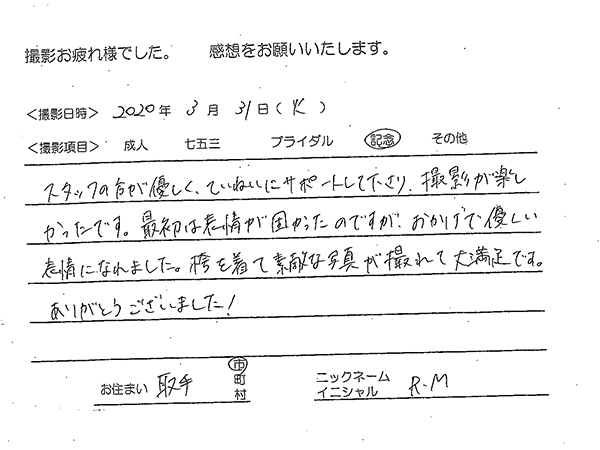 撮影お疲れ様でした。 感想をお願いいたします。
<撮影日時> 2020年 3月 31日(火)
<撮影項目> 成人 七五三 ブライダル 記念 その他
スタッフの方が優しく、ていねいにサポートして下さり、撮影が楽し
かったです。最初は表情が固かったのですが、おかげで優しい
表情になれました。袴を着て素敵な写真が撮れて大満足です。
ありがとうございました!
お住まい 取手 市 町 村
ニックネーム
イニシャル R.M